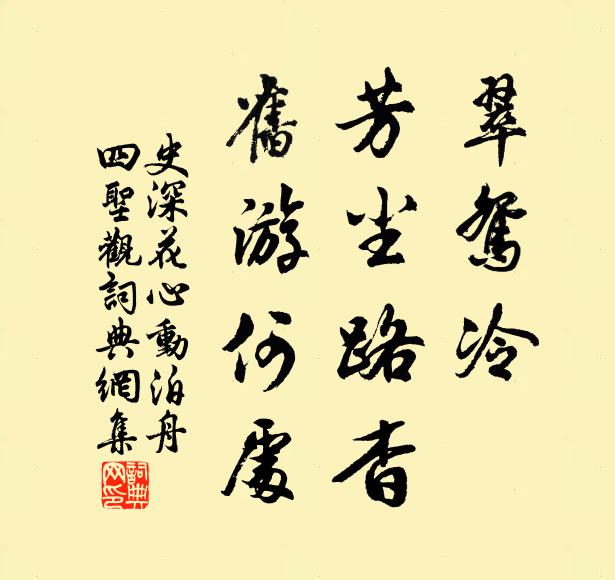 翠鴛冷
芳尘路杳
舊游何處
史深花心動泊舟
四聖觀詞典網集
詞典
网印